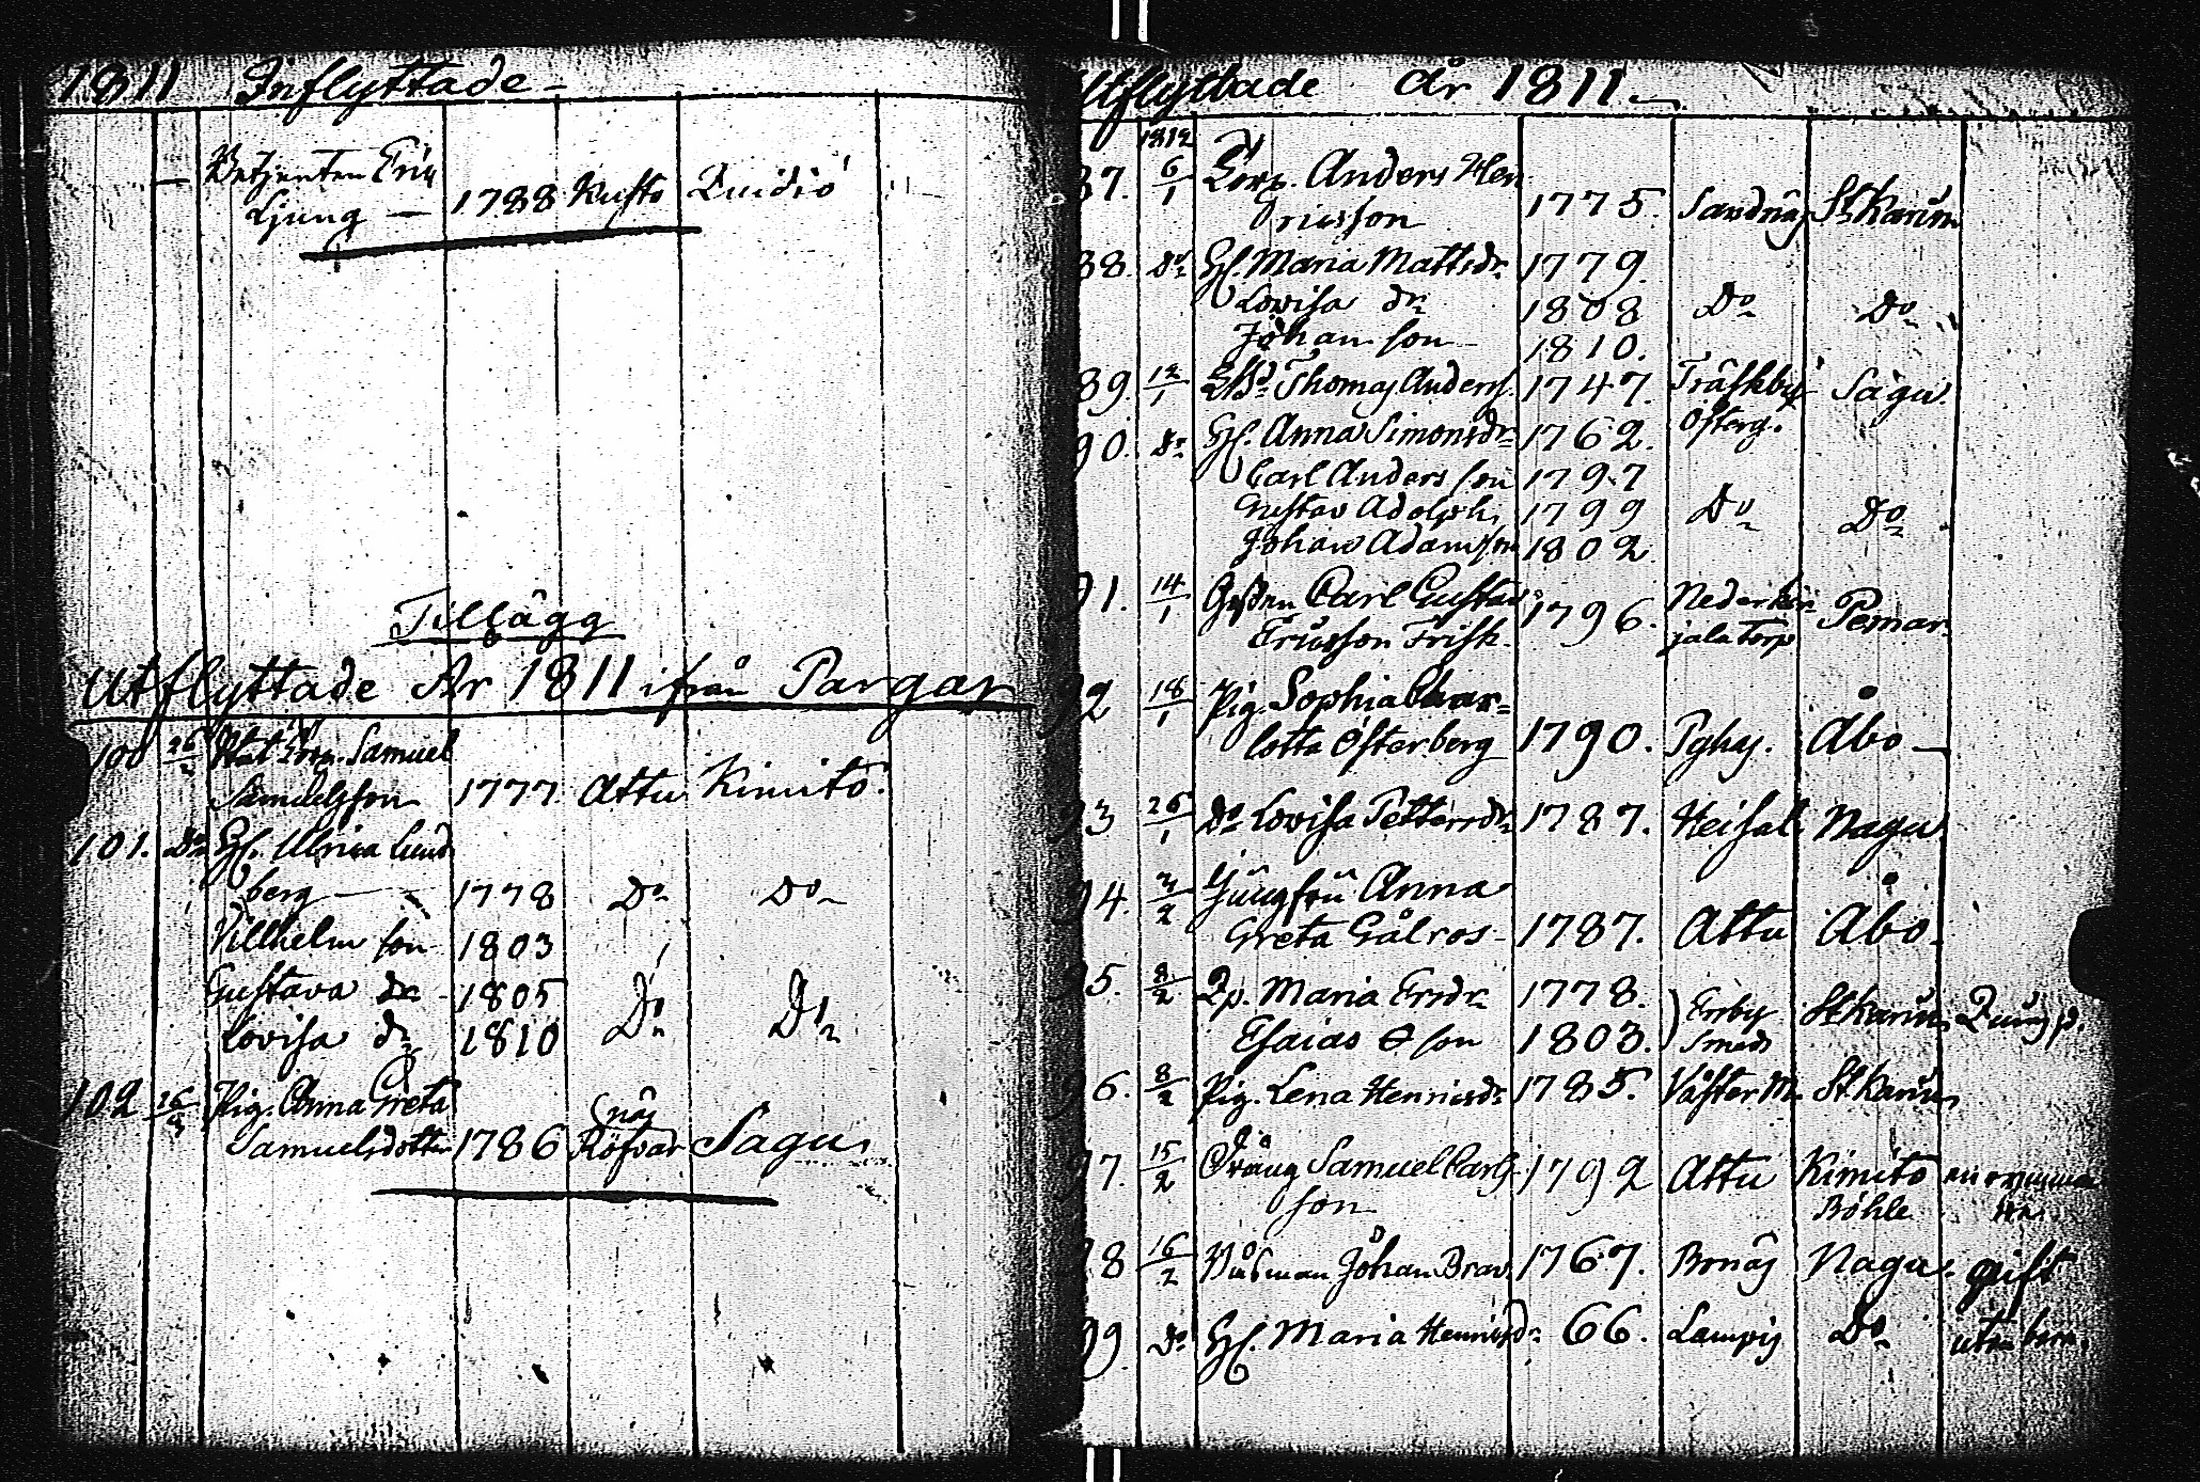 1811 Inflyttade
Betjenten Eric
Ljung — 1788 Kusto Quidiö
Tillägg
Utflyttade År 1811 ifrån Pargas
100 26/2 Torp. Samuel
Samuelsson 1777 Attu Kimito.
101. Do Hu. Ulrica Lund
berg — 1778 Do Do
Villhelm son 1803
Gustava dr 1805
Lovisa dr 1810 Do Do
102 Pig. Anna Greta
Samuelsdotter 1786 Röfvar näs Sagu
Utflyttade År 1811
1812
87. 6/1 Torp. Anders Hen
ricsson 1775. Sandnäs St Karins
88. Do Hu. Maria Mattsdr 1779.
Lovisa dr 1808 Do Do
Johan son 1810.
89. 12/1 Thomas Anderss. 1747. Träskby Sagu.
Österg.
90. Do Hu. Anna Simonsdr 1762.
Carl Anders son 1797
Gustav Adolph 1799 Do Do
Johan Adam son 1802
91. 14/1 Carl Gustav Nederkir
Ericsson Frisk. 1796. jala Torp Pemar
92 18/1 Pig. Sophia Char=
lotta Österberg 1790. Pghs. Åbo —
93 26/1 Do Lovisa Pettersdr 1787. Heisal Nagu
94. 3/2 Jungfru Anna
Greta Gålros 1787. Attu Åbo.
95. 8/2 Qp. Maria Ersdr 1778. Ersby St Karins
Esaias son 1803. Smeds
96. 8/2 Pig. Lena Henricsdr 1785. Väster M. St Karins
97. 15/2 Dräng Samuel Carls
son 1792 Attu Kimito
Böhle
98 16/2 Båtsman Johan Brav. 1767. Bonäs Nagu. gift
99 Do Hu. Maria Henricsdr 66. Lampis Do utan barn.